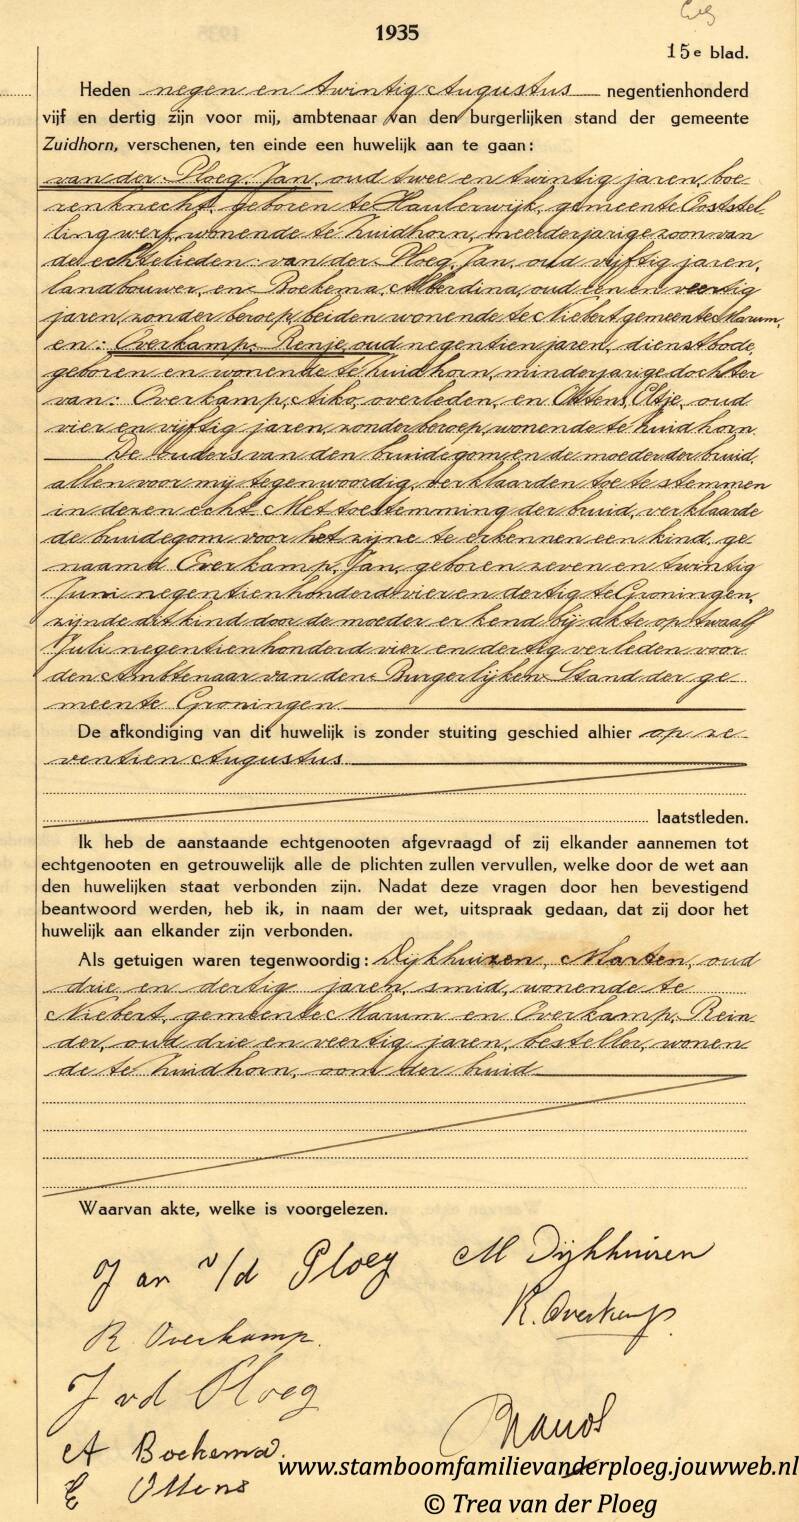 1935
15e blad.
Heden negen en twintig Augustus negentienhonderd
vijf en dertig zijn voor mij, ambtenaar van den burgerlijken stand der gemeente
Zuidhorn, verschenen, ten einde een huwelijk aan te gaan:
van der Ploeg, Jan, oud twee en twintig jaren, boe-
renknecht, geboren te Haulerwijk, gemeente Ooststel-
lingwerf, wonende te Zuidhorn, meerderjarige zoon van
de echtelieden: van der Ploeg, Jan, oud vijftig jaren,
landbouwer, en Boekema, Alberdina, oud een en veertig
jaren, zonder beroep, beiden wonende te Niebert gemeente Marum,
en: Overkamp, Renje, oud negentien jaren, dienstbode,
geboren en wonende te Zuidhorn, minderjarige dochter
van: Overkamp, Aiko, overleden, en Ottens, Eltje, oud
vier en vijftig jaren, zonder beroep, wonende te Zuidhorn.
De ouders van den bruidegom en de moeder der bruid,
allen voor mij tegenwoordig, verklaarden toe te stemmen
in dezen echt. Met toestemming der bruid, verklaarde
de bruidegom voor het zijne te erkennen een kind, ge-
naamd Overkamp, Jan, geboren zeven en twintig
Juni negentienhonderd vier en dertig te Groningen,
zijnde dit kind door de moeder erkend bij akte op twaalf
Juli negentienhonderd vier en dertig verleden voor
den Ambtenaar van den Burgerlijken Stand der ge-
meente Groningen
De afkondiging van dit huwelijk is zonder stuiting geschied alhier op ze-
ventien Augustus
laatstleden.
Ik heb de aanstaande echtgenooten afgevraagd of zij elkander aannemen tot
echtgenooten en getrouwelijk alle de plichten zullen vervullen, welke door de wet aan
den huwelijken staat verbonden zijn. Nadat deze vragen door hen bevestigend
beantwoord werden, heb ik, in naam der wet, uitspraak gedaan, dat zij door het
huwelijk aan elkander zijn verbonden.
Als getuigen waren tegenwoordig: Dijkhuizen, Marten, oud
drie en dertig jaren, smid, wonende te
Niebert, gemeente Marum en Overkamp, Rein
der, oud drie en veertig jaren, besteller, wonen
de te Zuidhorn, oom der bruid
Waarvan akte, welke is voorgelezen.
Jan v/d Ploeg M Dijkhuizen
K. Overkamp
R Overkamp.
J vd Ploeg
A Boekema.
E Ottens
www.stamboomfamilievanderploeg.jouwweb.nl
© Trea van der Ploeg